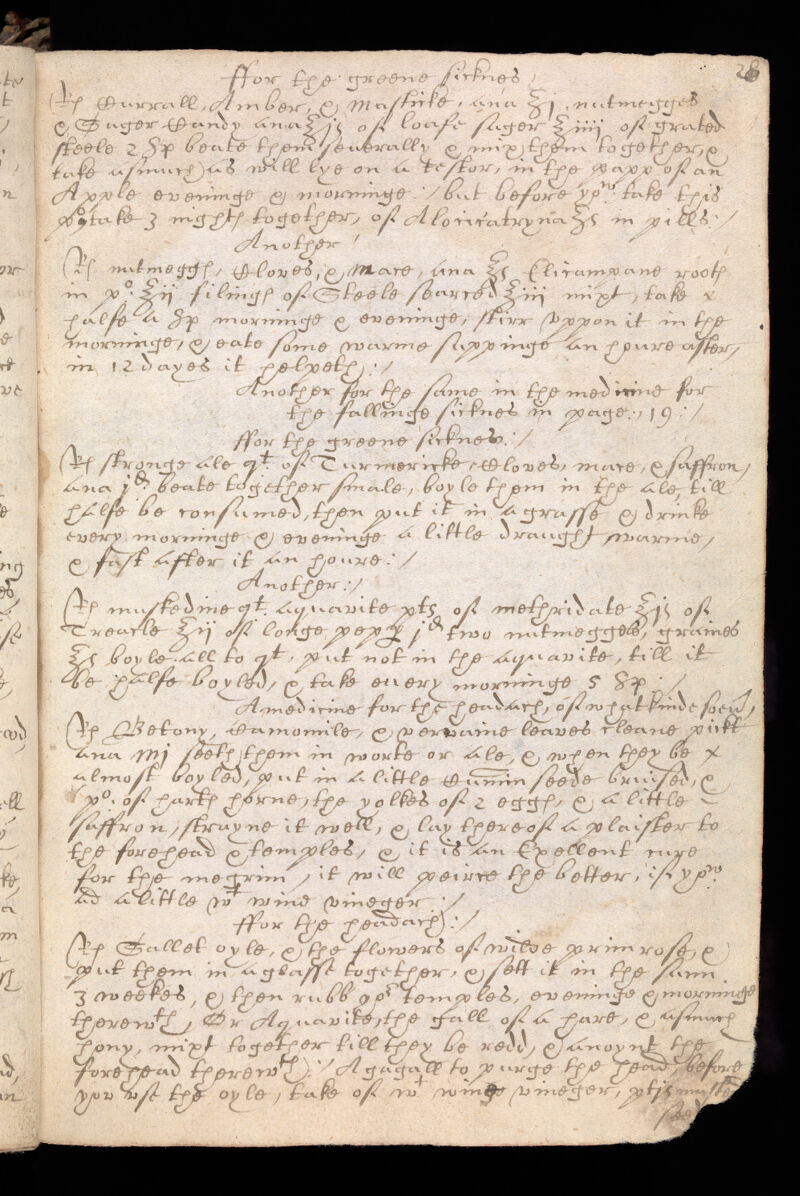 28
ffor the greene sicknes /
Rx Currall, Amber, & Masticke, ana ℥j, nutmegges
& Suger Candy ana ℥js of loafe suger ℥iiij of grated
steele 2 Sp beate them severally & mix them together, &
take asmuch as will lye on a testor, in the papp of an
Apple eveninge & morninge :/ but before yow take this
take 3 nights together, of Aloicicatryna ℥s in pills :/
Another /
Rx nutmeggs, Cloves, & Mace, ana ℥s Elicampane roots
in po: ℥ij filings of Steele searced ℥iij mixt, take x
halfe a Sp morninge & eveninge, stirr vppon it in the
morninge, & eate some warme suppinge an houre after,
in 12 dayes it helpeth :/
Another for the same in the medicine for
the fallinge sicknes in page : 19 :/
ffor the greene sicknes :/
Rx stronge ale qt. of Turmericke, Cloves, mace, & saffron,
ana jd beate together smale, boyle them in the ale, till
halfe be consumed, then put it in a grasse & drinke
every morninge & eveninge a little draught warme,
& fast after it an houre :/
Another :/
Rx muskedine qt. aquavite pts of methridate ℥js of
Treacle ℥ij of longe pepp jd two nutmegges, graines
℥s boyle all to qt, put not in the aquavite, till it
be halfe boyled, & take every morninge 5 Sp :/
A medicine for the headach, of what kinde soevr,
Rx Betony, Camomile, & vervaine leaves cleane pickt
ana Mj seeth them in worte or ale, & when they be x
almost boyled, put in a little Cumin seede bruised, &
po. of harts horne, the yolkes of 2 eggs, & a little
saffron, strayne it well, & lay thereof a plaister to
the forehead & temples, & it is an Exellent cure
for the megrim, it will peirce the better, if yow
ad a little wt wine vineger :/
ffor the headach :/
Rx Sallet oyle, & the flowers of wilde primrose, &
put them in a glasse together, & sett it in the sunn
3 weekes, & then rubb yor temples, eveninge & morninge
therewth, Or Aquavite, the gall of a hare, & asmuch
hony, mixt together till they be redd, & anoynt the
forehead therewth :/ A gagall to purge the head, before
yow vse the oyle, take of wt wine vineger, ptjs mustr
seed